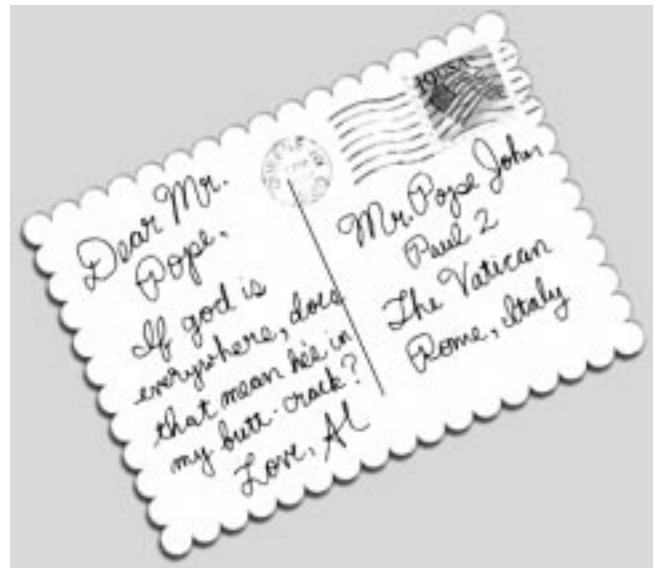 Dear Mr.
Pope,
If god is
everywhere, does
that mean he's in
my butt-crack?
Love, Al
Mr. Pope John
Paul 2
The Vatican
Rome, Italy